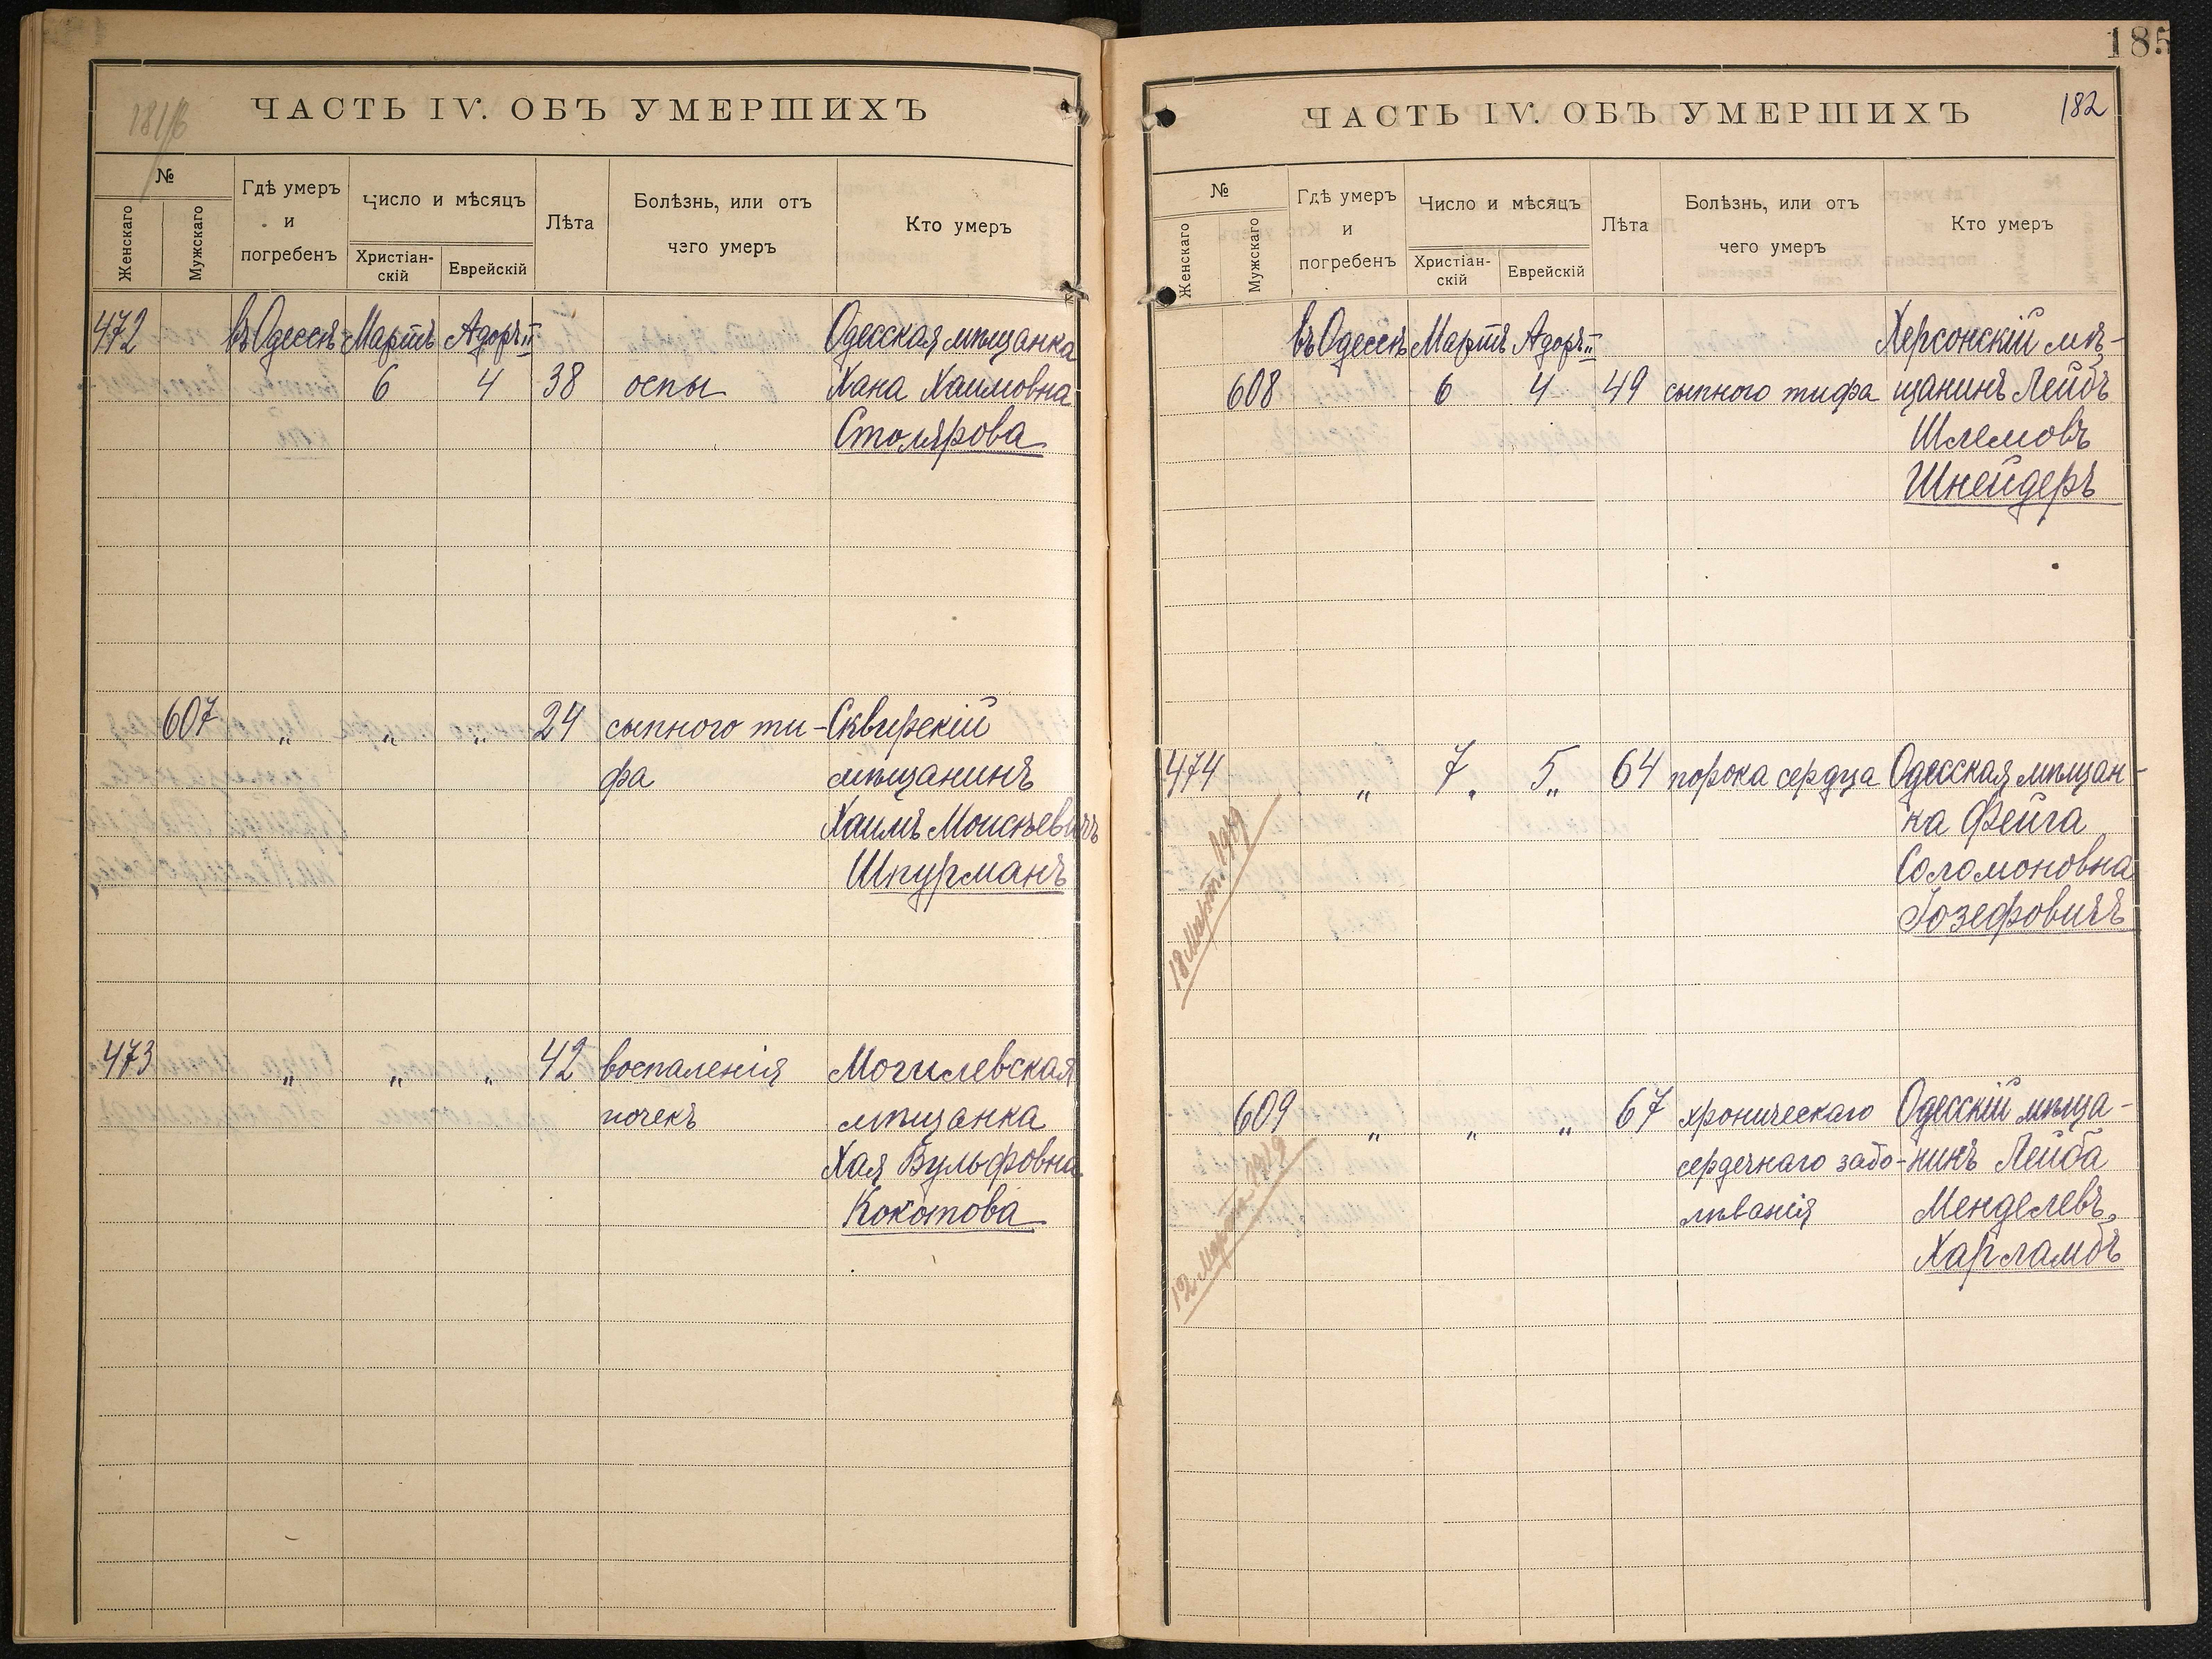 181/б
ЧАСТЬ IV. ОБЪ УМЕРШИХЪ
№
Женскаго
Мужскаго
Гдѣ умеръ
и
погребенъ
Число и мѣсяцъ
Христіан-
скій
Еврейскій
Лѣта
Болѣзнь, или отъ
чего умеръ
Кто умеръ
472 въ Одессѣ Мартъ Адоръ II Одесская мѣщанка
6 4 38 оспы Хана Хаимовна
Столярова
607 " " " 24 сыпного ти- Сквирскій
фа мѣщанинъ
Хаимъ Моисѣевичъ
Шпурманъ
473 " " " 42 воспаленія Могилевская
почекъ мѣщанка
Хая Вульфовна
Кокотова
185
ЧАСТЬ IV. ОБЪ УМЕРШИХЪ
182
№
Женскаго
Мужскаго
Гдѣ умеръ
и
погребенъ
Число и мѣсяцъ
Христіан-
скій
Еврейскій
Лѣта
Болѣзнь, или отъ
чего умеръ
Кто умеръ
въ Одессѣ Мартъ Адоръ II Херсонскій мѣ-
608 6 4 49 сыпного тифа щанинъ Лейбъ
Шлемовъ
Шнейдеръ
474 " 7 " 5 " 64 порока сердца Одесская мѣщан-
ка Фейга
Соломоновна
Іозефовичъ
18 Март. 1919
609 " " " 67 хроническаго Одесскій мѣща-
сердечнаго забо- нинъ Лейба
лѣванія Менделевъ
Харламбъ
12 Марта 1919